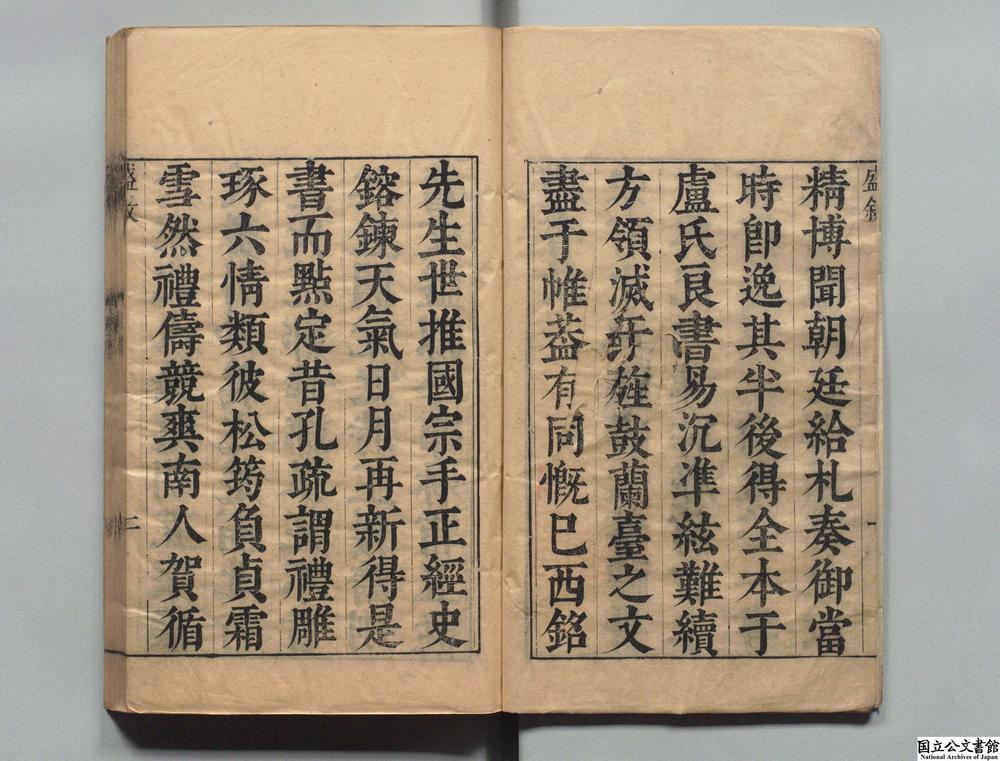 精博聞朝廷給札奏御當
時卽逸其半後得全本于
盧氏良書易沉準絃難續
方領滅玗旌鼓蘭臺之文
盡于帷葢有同慨已西銘
先生世推國宗手正經史
鎔鍊天氣日月再新得是
書而點定昔孔疏謂禮雕
琢六情類彼松筠負貞霜
雪然禮儔競爽南人賀循
二
国立公文書館
National Archives of Japan